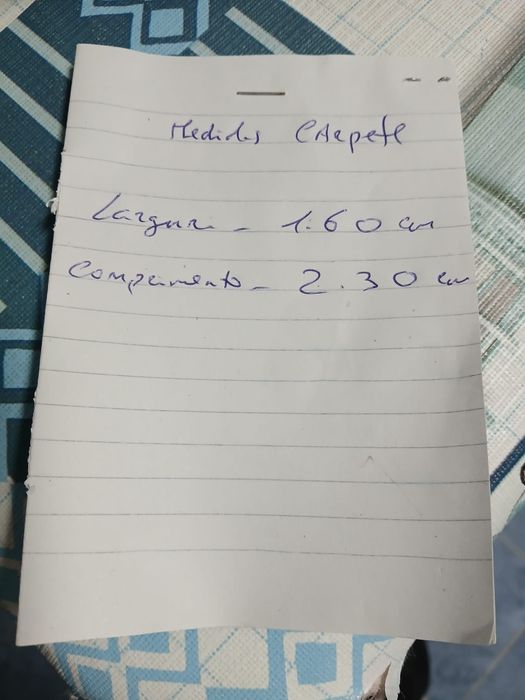 Medidas CArpete
Largura - 1.60 cm
Comprimento - 2.30 cm